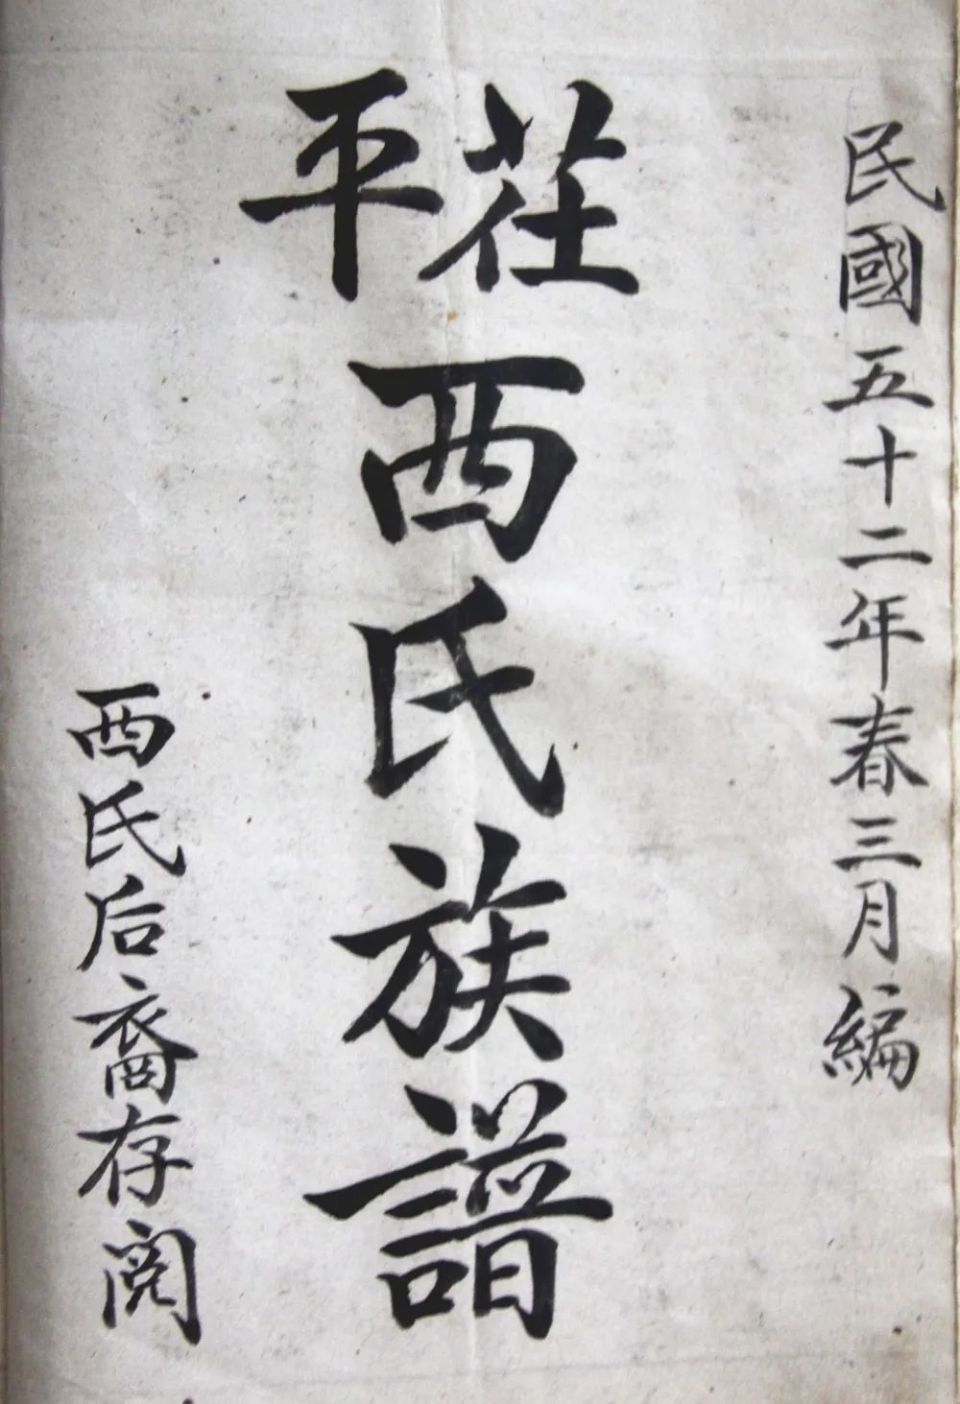 民國五十二年春三月編
茌平
西氏族譜
西氏后裔存阅